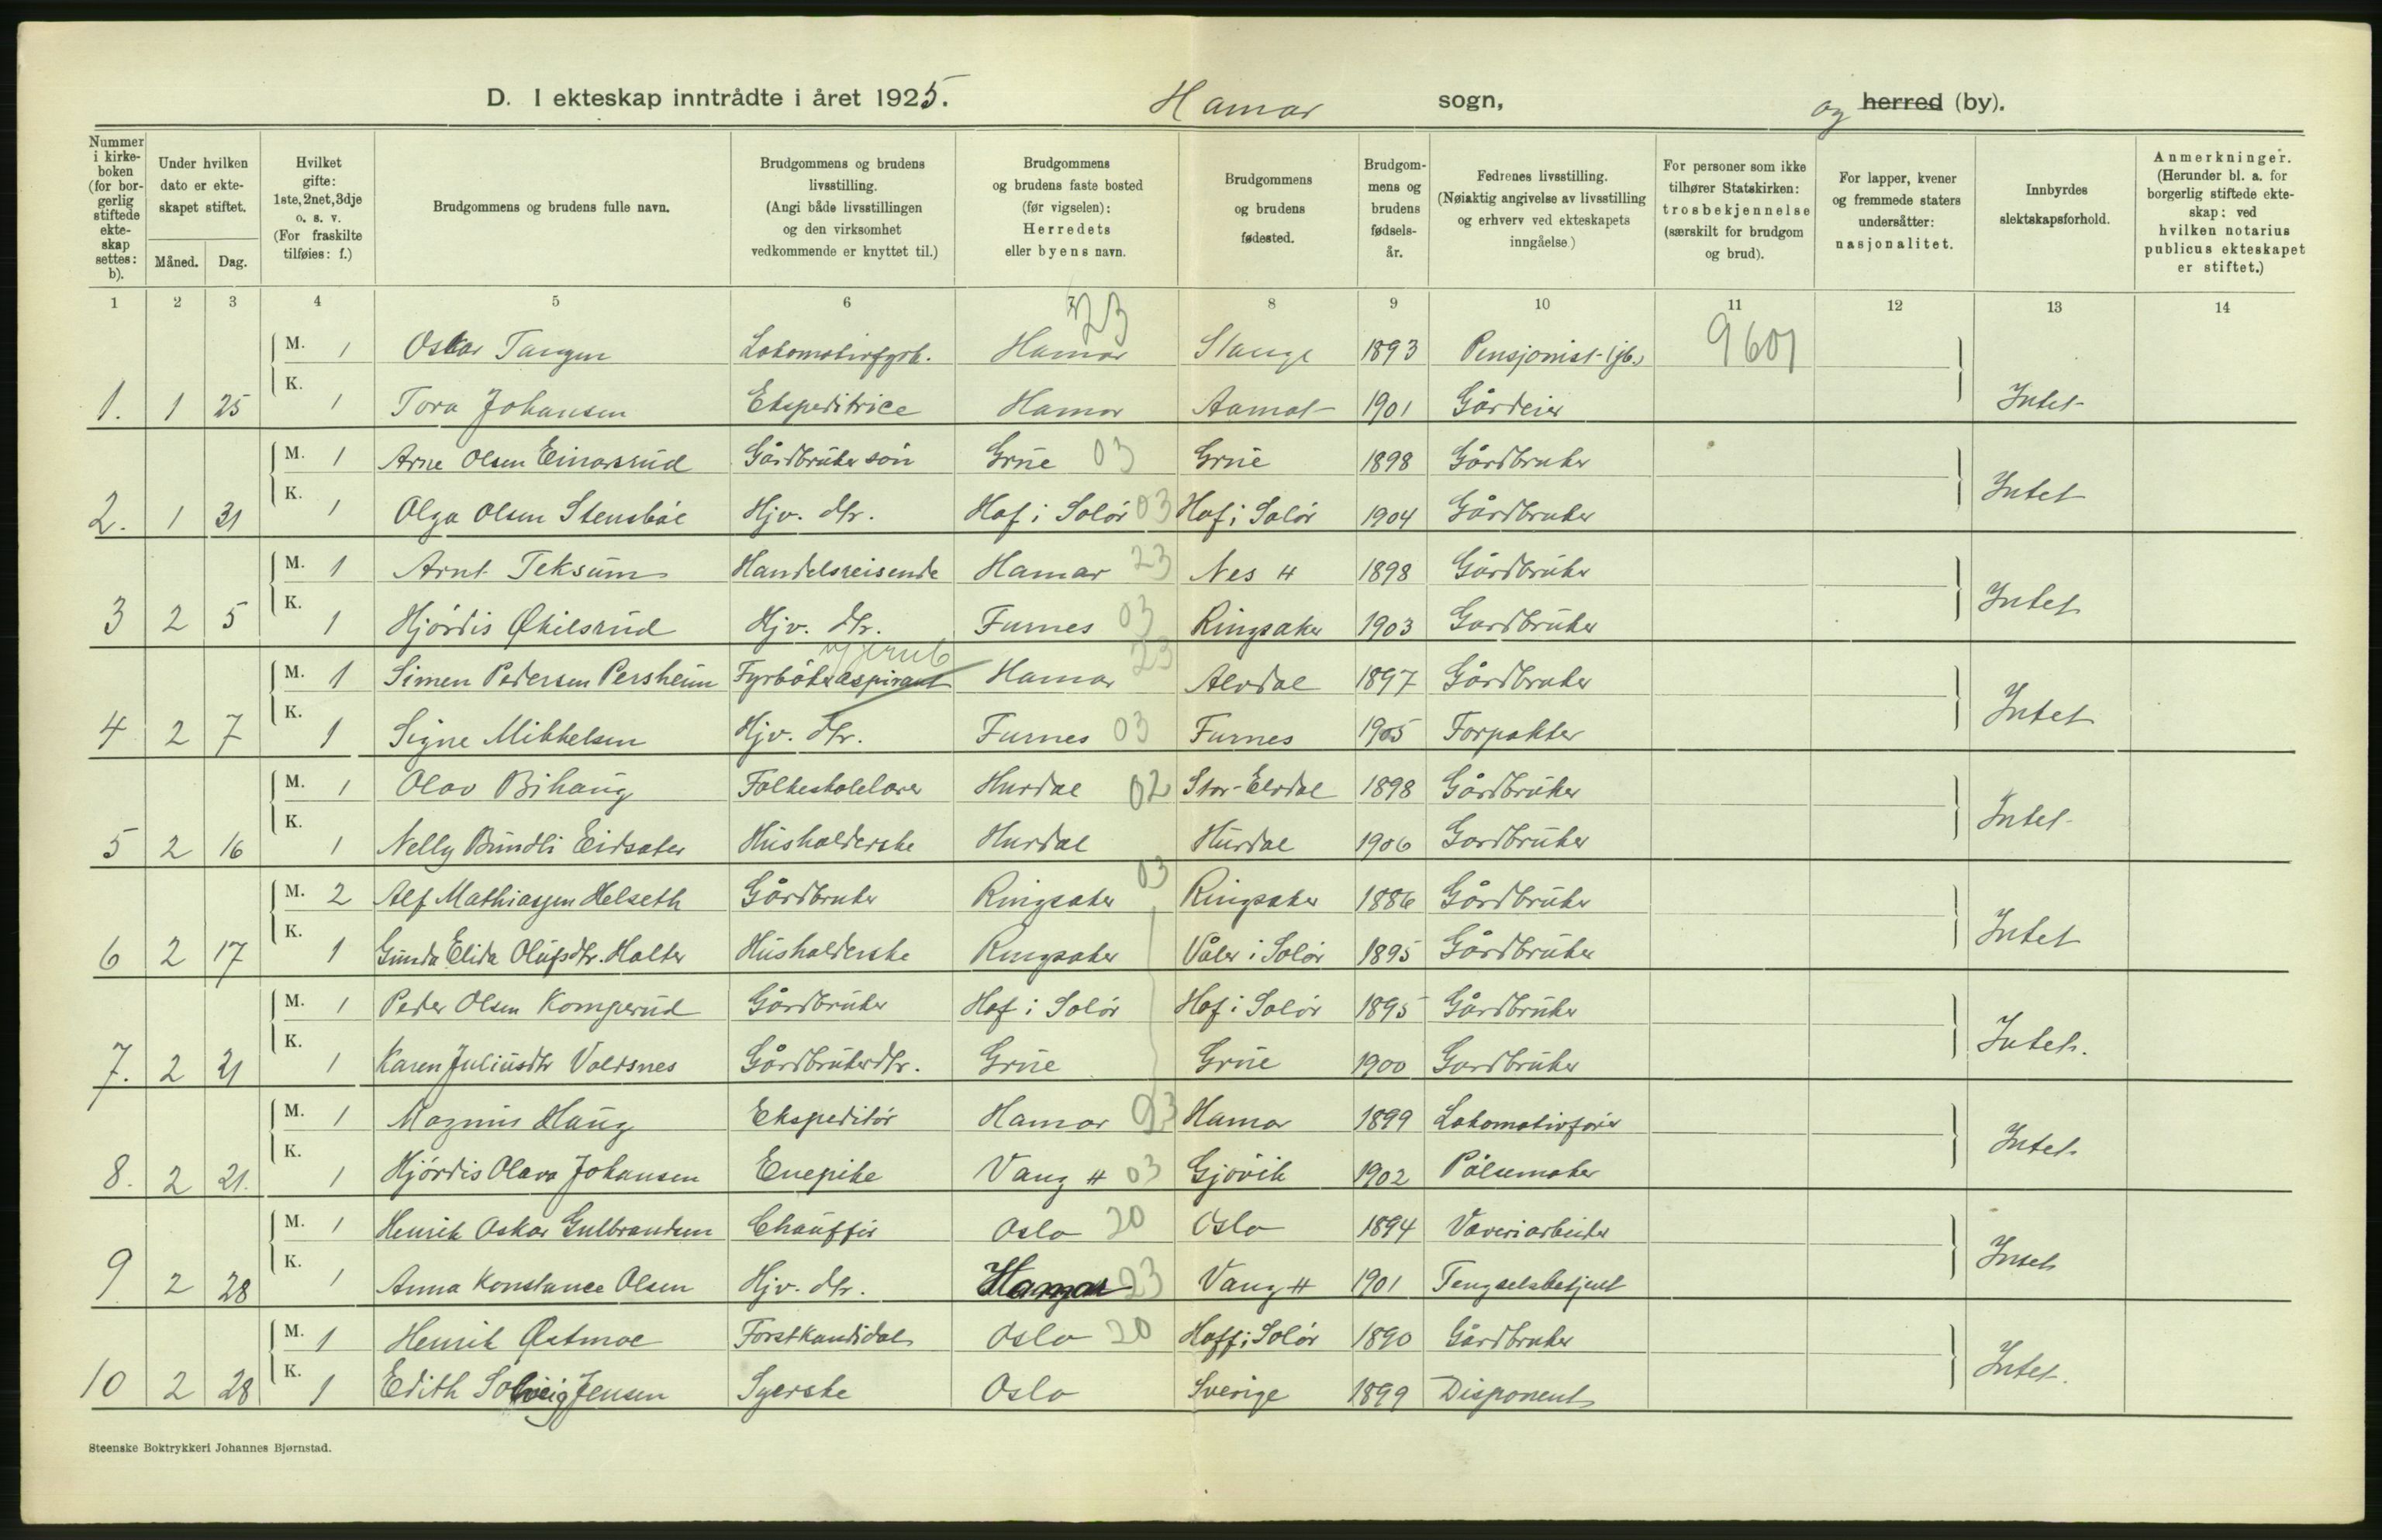 D. I ekteskap inntrådte i året 1925. Hamar sogn, og herred (by).
Nummer i kirkeboken (for borgerlig stiftede ekteskap settes: b).
Under hvilken dato er ekteskapet stiftet.
Måned. Dag.
Hvilket gifte: 1ste, 2net, 3dje o. s. v. (For fraskilte tilføies: f.)
Brudgommens og brudens fulle navn.
Brudgommens og brudens livsstilling. (Angi både livsstillingen og den virksomhet vedkommende er knyttet til.)
Brudgommens og brudens faste bosted (før vigselen): Herredets eller byens navn.
Brudgommens og brudens fødested.
Brudgommens og brudens fødselsår.
Fedrenes livsstilling. (Nøiaktig angivelse av livsstilling og erhverv ved ekteskapets inngåelse.)
For personer som ikke tilhører Statskirken: trosbekjennelse (særskilt for brudgom og brud).
For lapper, kvener og fremmede staters undersåtter: nasjonalitet.
Innbyrdes slektskapsforhold.
Anmerkninger. (Herunder bl. a. for borgerlig stiftede ekteskap: ved hvilken notarius publicus ekteskapet er stiftet.)
1 2 3 4 5 6 7 8 9 10 11 12 13 14
M. 1 Oskar Tangen Lokomotivfyrb. Hamar 23 Stange 1893 Pensjonist (jb.) 9601
1. 1 25 K. 1 Tora Johansen Ekspeditrice Hamar Aamot 1901 Gårdeier Intet
M. 1 Arne Olsen Einarsrud Gårdbruker søn Grue 03 Grue 1898 Gårdbruker
2. 1 31 K. 1 Olga Olsen Stensbøe Hjv. dtr. Hof i Solør 03 Hof i Solør 1904 Gårdbruker Intet
M. 1 Arnt Teksum Handelsreisende Hamar 23 Nes H 1898 Gårdbruker
3 2 5 K. 1 Hjørdis Økilsrud Hjv. dtr. Furnes 03 Ringsaker 1903 Gardbruker Intet
M. 1 Simen Pedersen Persheim Fyrbøteraspirant Hamar 23 Alvdal 1897 Gårdbruker
4 2 7 K. 1 Signe Mikkelsen Hjv. dtr. Furnes 03 Furnes 1905 Forpakter Intet
M. 1 Olav Bihaug Folkeskolelærer Hurdal 02 Stor-Elvdal 1898 Gårdbruker
5 2 16 K. 1 Nelly Bundli Eidsater Husholderske Hurdal Hurdal 1906 Gardbruker Intet
M. 2 Alf Mathiassen Helseth Gårdbruker Ringsaker 03 Ringsaker 1886 Gårdbruker
6 2 17 K. 1 Gunda Elida Olufsdtr. Halter Husholderske Ringsaker Våler i Solør 1895 Gårdbruker Intet
M. 1 Peder Olsen Komperud Gårdbruker Hof i Solør Hof i Solør 1895 Gårdbruker
7. 2 21 K. 1 Karen Juliusdtr Voldsnes Gårdbrukerdtr. Grue Grue 1900 Gardbruker Intet.
M. 1 Magnus Haug Ekspeditør Hamar 23 Hamar 1899 Lokomotivfører
8. 2 21. K. 1 Hjørdis Olava Johansen Enepike Vang H 03 Gjøvik 1902 Pølsemaker Intet.
M. 1 Henrik Oskar Gulbrandsen Chauffør Oslo 20 Oslo 1894 Væveriarbeider
9 2 28 K. 1 Anna Konstance Olsen Hjv. dtr. Hamar 23 Vang H 1901 Fengselsbetjent Intet
M. 1 Henrik Østmoe Forstkandidat Oslo 20 Hoff i Solør 1890 Gårdbruker
10 2 28 K. 1 Edith Solveig Jensen Syerske Oslo Sverige 1899 Disponent Intet.
Steenske Boktrykkeri Johannes Bjørnstad.